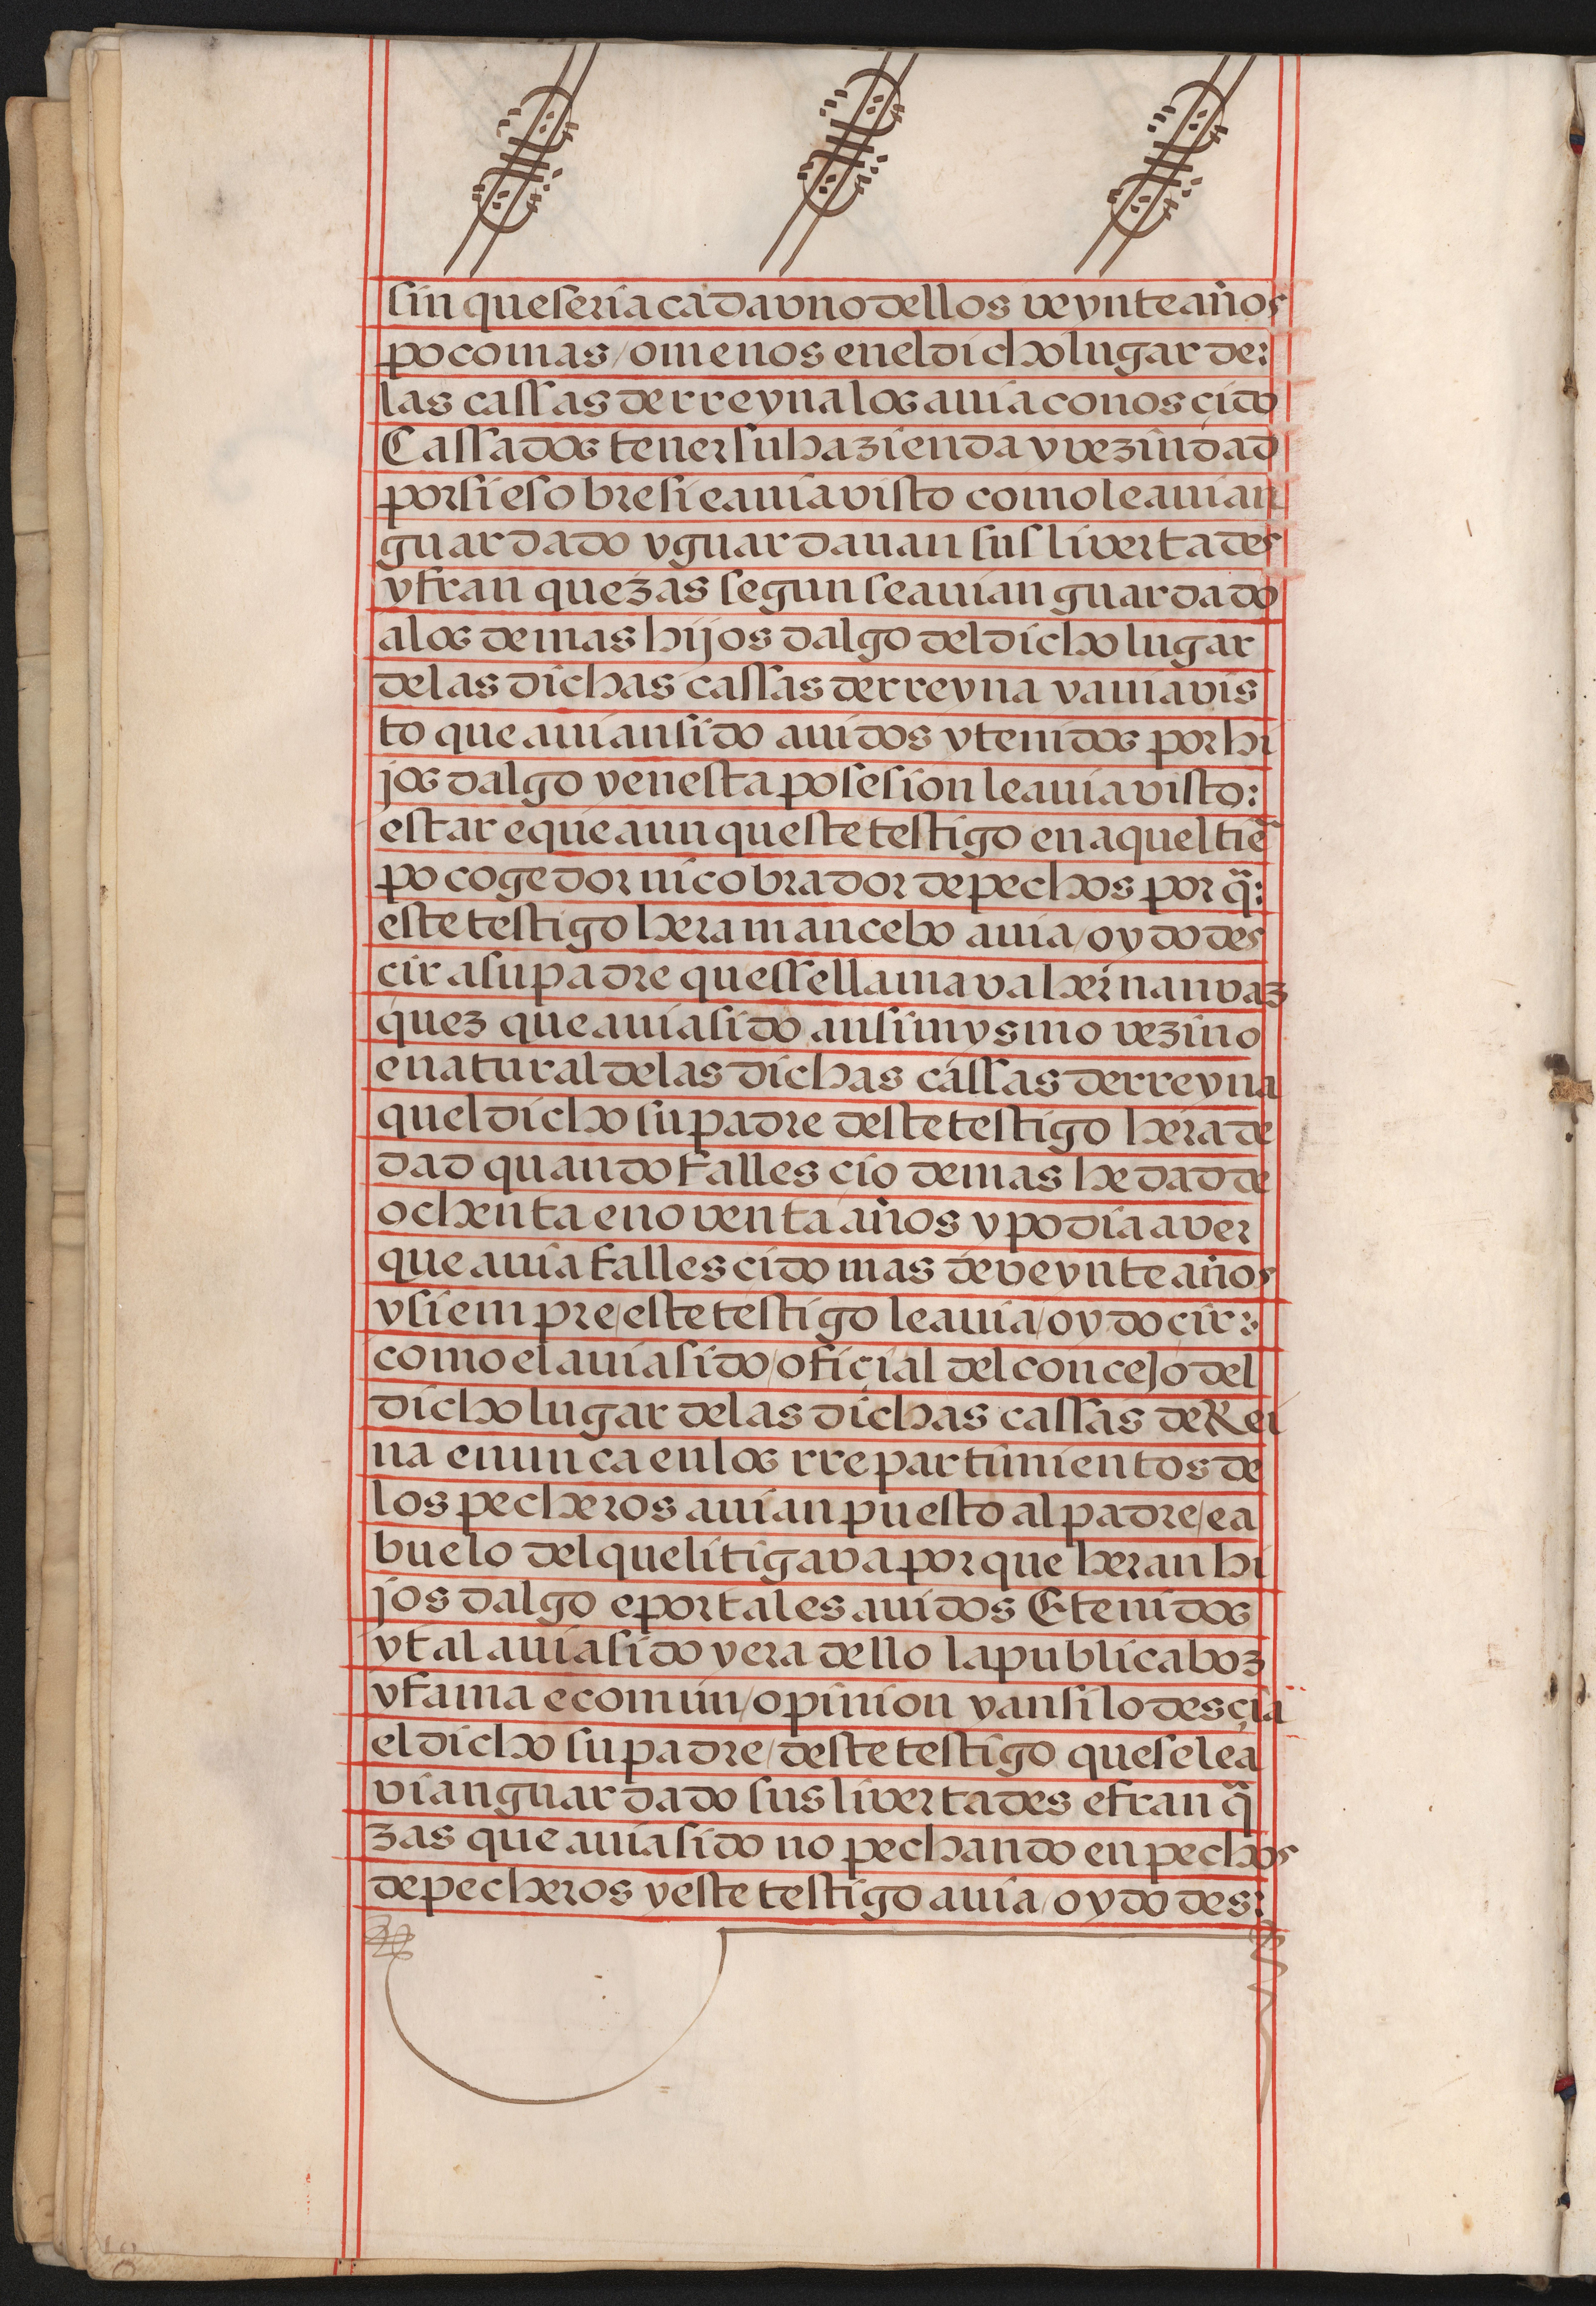 sin que seria cada vno dellos veynte años
poco mas / o menos en el dicho lugar de:
las cassas de rreyna los auia conosçido
Cassados tener su hazienda y vezindad
por si e sobre si e auia visto como le auian
guardado y guardauan sus livertades
y franquezas segun se auian guardado
a los demas hijos dalgo del dicho lugar
de las dichas cassas de rreyna y auia vis
to que auian sido auidos y tenidos por hi
jos dalgo y en esta posesion le auia visto:
estar e que aunqueste testigo en aquel tiẽ
po cogedor ni cobrador de pechos por q̃:
este testigo hera mancebo auia / oydo des
cir a su padre que ssellamava hernan vaz
quez que auia sido ansimysmo vezino
e natural de las dichas cassas de rreyna
quel dicho su padre deste testigo hera de
dad quando fallescio de mas hedad de
ochenta e noventa años y podia aver
que auia fallescido mas de veynte años
y siempre / este testigo le auia / oydo cir:
como el auia sido / ofiçial del concejo del
dicho lugar de las dichas cassas de Rei
na e nunca en los rrepartimientos de
los pecheros auian puesto al padre / e a
buelo del que litigava porque heran hi
jos dalgo e por tales auidos E tenidos
y tal auia sido y era dello la publica boz
y fama e comun / opinion y ansi lo desçia
el dicho su padre / deste testigo que se le a
vian guardado sus livertades e franq̃
zas que auia sido no pechando en pechos
de pecheros y este testigo auia / oydo des: